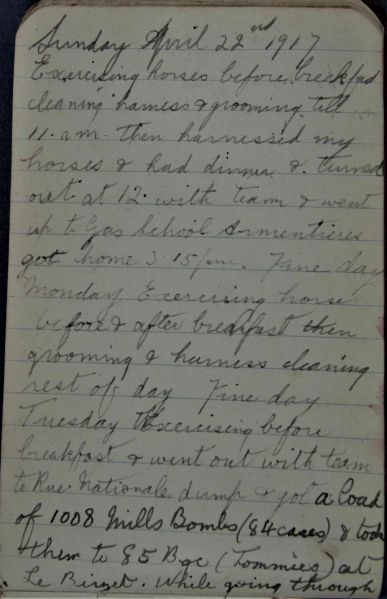 Sunday April 22nd 1917
Exercising horses before breakfast
cleaning harness & grooming till
11. a.m. then harnessed my
horses & had dinner & turned
out at 12 with team & went
up to Gas School Armentieres
got home 3.15 pm. Fine day
Monday Exercising horses
before & after breakfast then
grooming & harness cleaning
rest of day Fine day
Tuesday Exercising before
breakfast & went out with team
to Rue Nationale dump & got a load
of 1008 Mills Bombs (84 cases) & took
them to 85 Bge (Tommies) at
Le Bizet. While going through